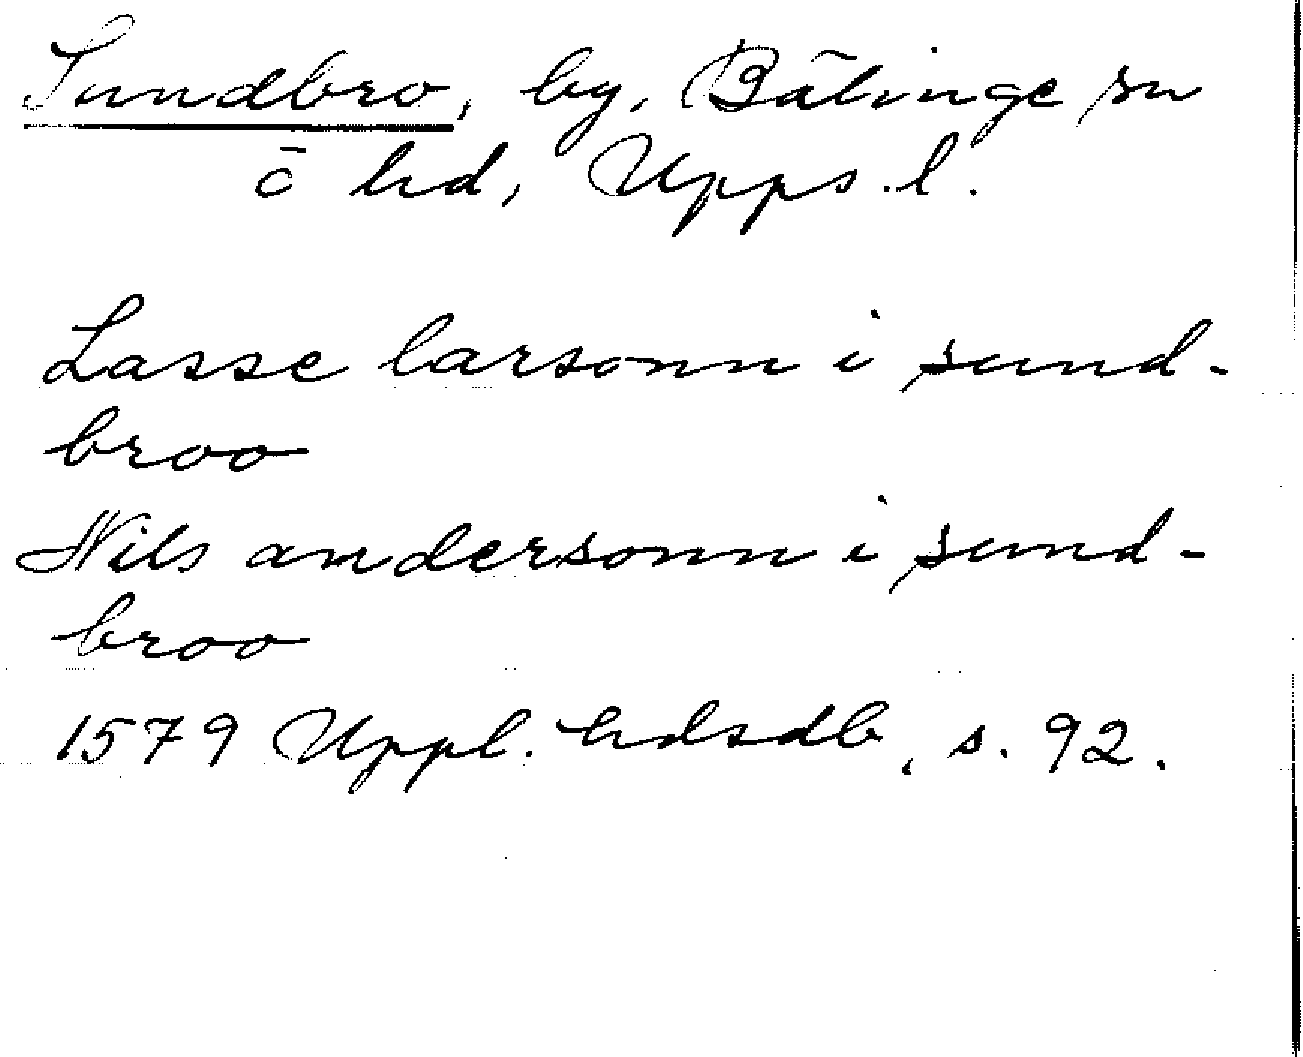 Sundbro, by, Bälinge sn
o hd, Upps. l.
Lasse larsonn i sund-
broo
Nils andersonn i sund-
broo
1579 Uppl. hdsdb, s. 92.